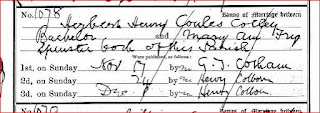 No. 1078 Banns of Marriage between
Herbert Henry Coules Colley
Bachelor and Mary Ann Frig
Spinster both of this Parish
Were published, as follows:
1st, on Sunday Nov 17 by Mr. G. J. Cotham
2d, on Sunday 24 by Mr. Henry Colborn
3d, on Sunday Dec 1 by Mr. Henry Colborn
Banns of Marriage between